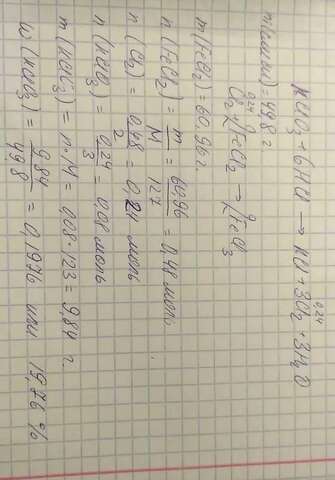 KClO₃ + 6HCl → KCl + 3Cl₂ + 3H₂O
0,24
m(смеси) = 49,8 г
0,24
Cl₂ + 2FeCl₂ → 2FeCl₃
m(FeCl₂) = 60,96 г.
n(FeCl₂) = m/M = 60,96/127 = 0,48 моль.
n(Cl₂) = 0,48/2 = 0,24 моль
n(KClO₃) = 0,24/3 = 0,08 моль
m(KClO₃) = n·M = 0,08·123 = 9,84 г.
w(KClO₃) = 9,84/49,8 = 0,1976 или 19,76%